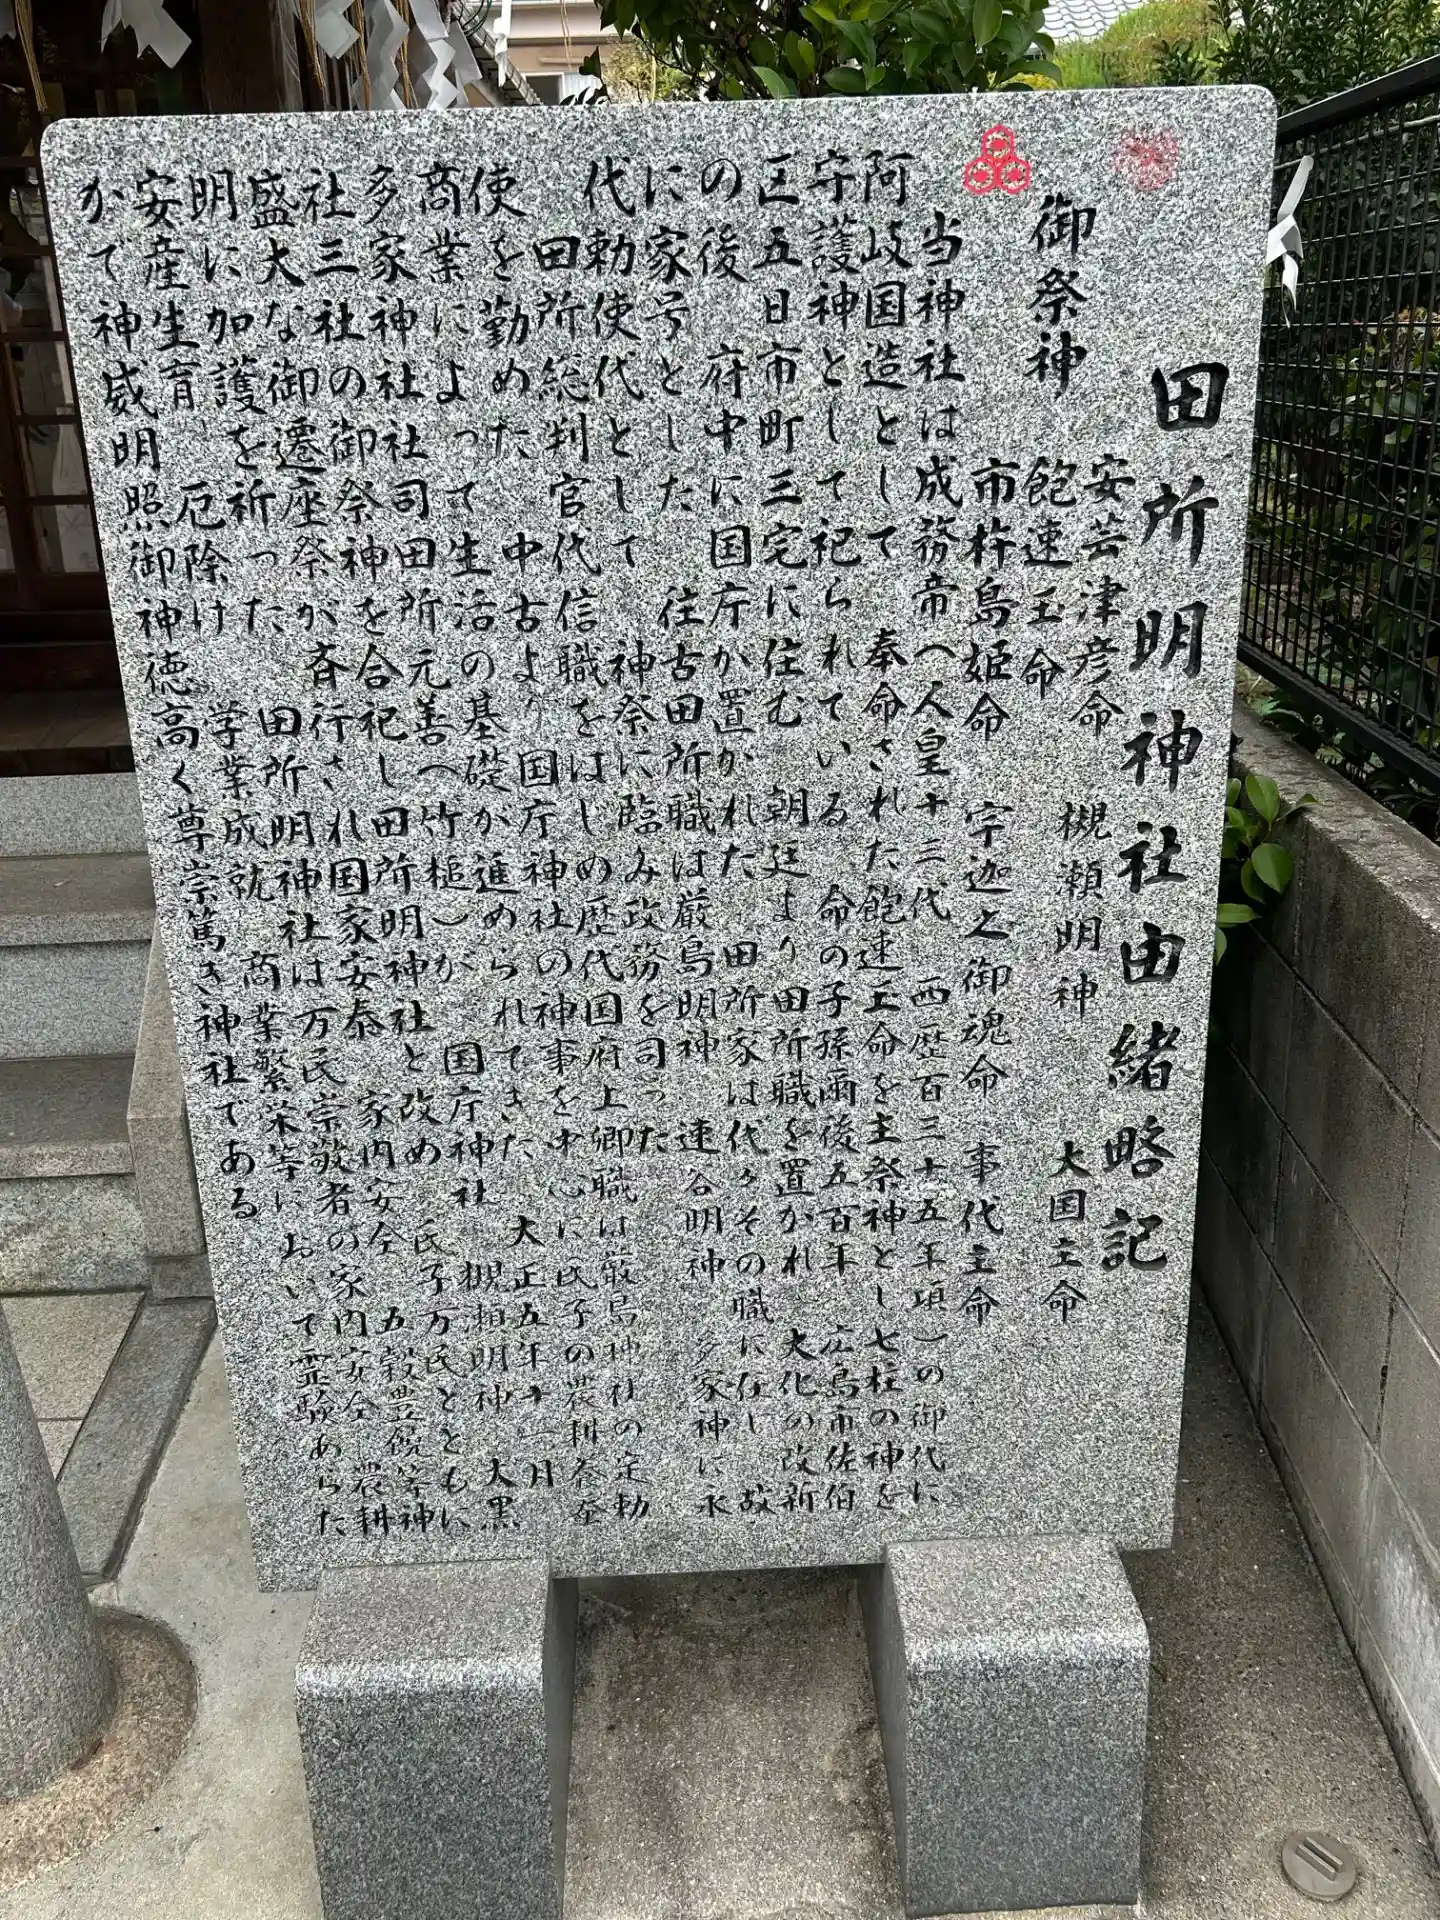 田所明神社由緒略記
御祭神 安芸津彦命 槻瀬明神 大国主命
飽速玉命
市杵島姫命 宇迦之御魂命 事代主命
当神社は成務帝(人皇十三代 西歴百三十五年頃)の御代に
阿岐国造として 奉命された飽速玉命を主祭神とし七柱の神を
守護神として祀られている 命の子孫爾後五百年 広島市佐伯
区五日市町三宅に住む 朝廷より田所職を置かれ 大化の改新
の後 府中に国庁が置かれた 田所家は代々その職に任し 故
に家号とした 往古田所職は厳島明神 速谷明神 多家神に水
代勅使代として 神祭に臨み政務を司った
田所総判官代信職をはじめ歴代国府上卿職は厳島神社の定勅
使を勤めた 中古より国庁神社の神事を中心に氏子の農耕
商業によって生活の基礎が進められてきた 大正五年十一月
多家神社社司田所元善(竹槌)が 国庁神社 槻瀬明神 大黒
社三社の御祭神を合祀し田所明神社と改め 氏子万民とともに
盛大な御遷座祭が斉行され国家安泰 家内安全 五穀豊饒
明に加護を祈った 田所明神社は万民崇敬者の家内安全 農耕
安産生育 厄除け 学業成就 商業繁栄等において霊験あらた
かで神威明照御神徳高く尊崇篤き神社である